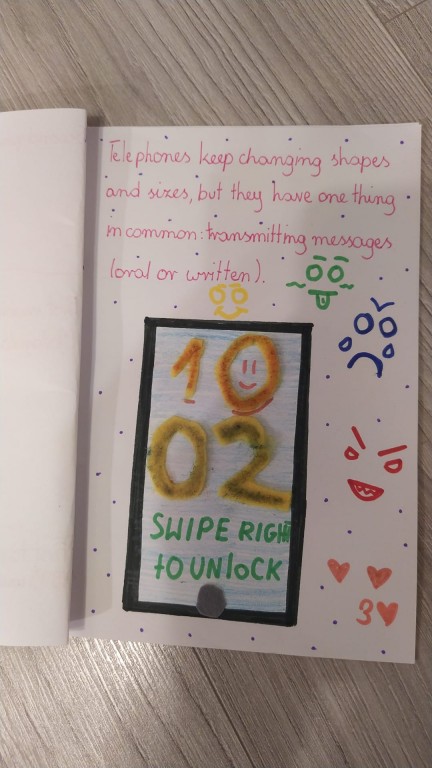 Telephones keep changing shapes
and sizes, but they have one thing
in common: transmitting messages
(oral or written).
10
02
SWIPE RIGHT
tO UNlOCK
3